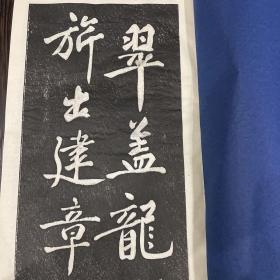 翠盖龍
旂出建章